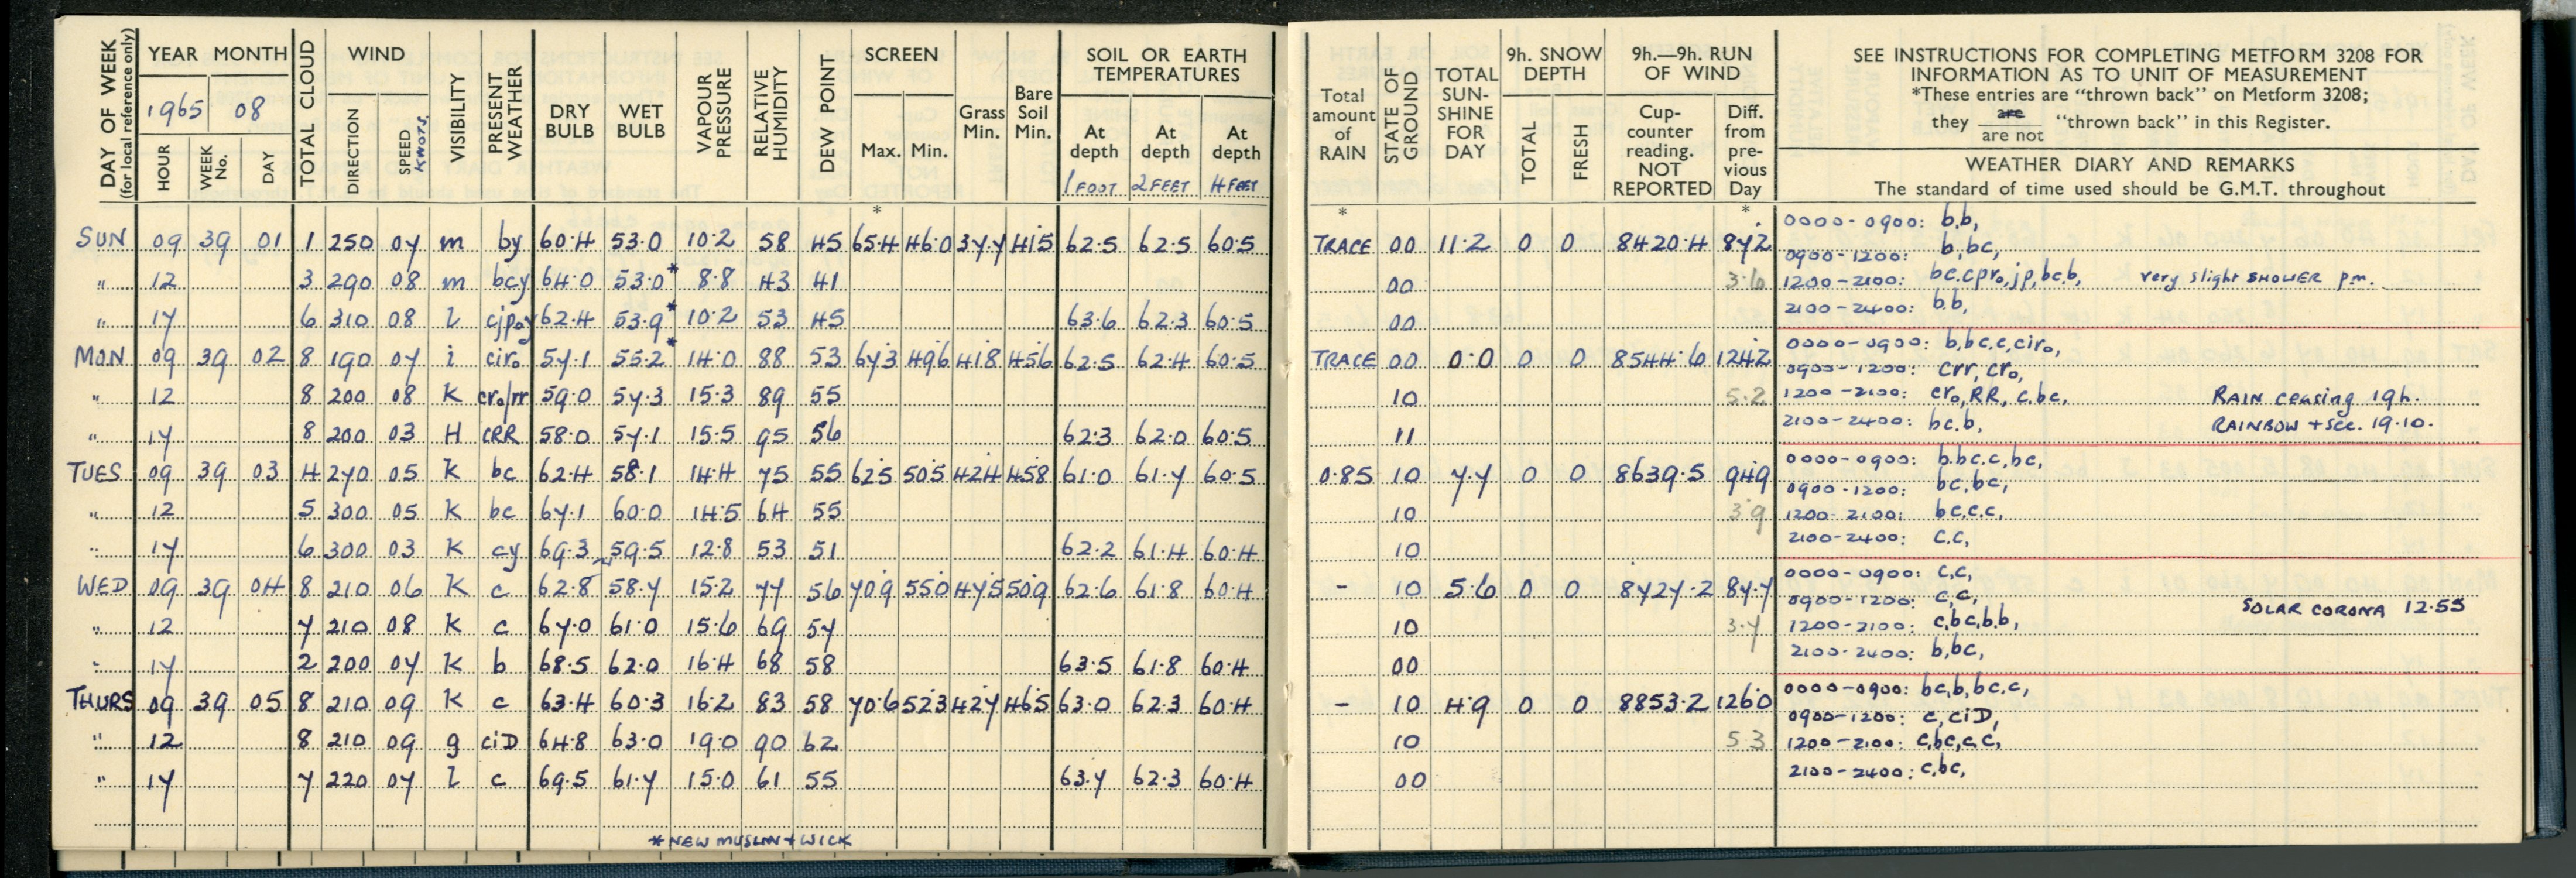 DAY OF WEEK (for local reference only) YEAR MONTH TOTAL CLOUD WIND VISIBILITY PRESENT WEATHER DRY BULB WET BULB VAPOUR PRESSURE RELATIVE HUMIDITY DEW POINT SCREEN Grass Min. Bare Soil Min. SOIL OR EARTH TEMPERATURES
1965 08
HOUR WEEK No. DAY DIRECTION SPEED KNOTS Max. Min. At depth At depth At depth
1 FOOT 2 FEET 4 FEET
*
SUN 09 39 01 1 250 07 m by 60.4 53.0 10.2 58 45 65.4 46.0 37.7 41.5 62.5 62.5 60.5
" 12 3 290 08 m bcy 64.0 53.0* 8.8 43 41
" 17 6 310 08 l cjpoy 62.4 53.9* 10.2 53 45 63.6 62.3 60.5
MON 09 39 02 8 190 07 i ciro 57.1 55.2* 14.0 88 53 67.3 49.6 41.8 45.6 62.5 62.4 60.5
" 12 8 200 08 K cro/rr 59.0 57.3 15.3 89 55
" 17 8 200 03 H cRR 58.0 57.1 15.5 95 56 62.3 62.0 60.5
TUES 09 39 03 4 270 05 K bc 62.4 58.1 14.4 75 55 62.5 50.5 42.4 45.8 61.0 61.7 60.5
" 12 5 300 05 K bc 67.1 60.0 14.5 64 55
" 17 6 300 03 K cy 69.3 59.5 12.8 53 51 62.2 61.4 60.4
WED 09 39 04 8 210 06 K c 62.8 58.7 15.2 77 56 70.9 55.0 47.5 50.9 62.6 61.8 60.4
" 12 7 210 08 K c 67.0 61.0 15.6 69 57
" 17 2 200 07 K b 68.5 62.0 16.4 68 58 63.5 61.8 60.4
THURS 09 39 05 8 210 09 K c 63.4 60.3 16.2 83 58 70.6 52.3 42.7 46.5 63.0 62.3 60.4
" 12 8 210 09 g ciD 64.8 63.0 19.0 90 62
" 17 7 220 07 l c 69.5 61.7 15.0 61 55 63.7 62.3 60.4
* NEW MUSLIN + WICK
Total amount of RAIN STATE OF GROUND TOTAL SUN-SHINE FOR DAY 9h. SNOW DEPTH 9h.—9h. RUN OF WIND
TOTAL FRESH Cup-counter reading. NOT REPORTED Diff. from pre-vious Day
SEE INSTRUCTIONS FOR COMPLETING METFORM 3208 FOR
INFORMATION AS TO UNIT OF MEASUREMENT
*These entries are "thrown back" on Metform 3208;
they are / are not "thrown back" in this Register.
WEATHER DIARY AND REMARKS
The standard of time used should be G.M.T. throughout
* *
TRACE 00 11.2 0 0 8420.4 87.2
00 3.6
00
TRACE 00 0.0 0 0 8544.6 124.2
10 5.2
11
0.85 10 7.7 0 0 8639.5 94.9
10 3.9
10
- 10 5.6 0 0 8727.2 87.7
10 3.7
00
- 10 4.9 0 0 8853.2 126.0
10 5.3
00
0000-0900: b,b,
0900-1200: b,bc,
1200-2100: bc.cpro,jp,bc,b, very slight SHOWER pm.
2100-2400: b.b,
0000-0900: b,bc,c,ciro,
0900-1200: crr, cro,
1200-2100: cro,RR, c.bc, RAIN ceasing 19h.
2100-2400: bc.b, RAINBOW + sec. 19.10.
0000-0900: b.bc.c,bc,
0900-1200: bc,bc,
1200-2100: bc.c.c,
2100-2400: c.c,
0000-0900: c,c,
0900-1200: c,c,
SOLAR CORONA 12.55
1200-2100: c,bc,b.b,
2100-2400: b,bc,
0000-0900: bc,b,bc,c,
0900-1200: c,ciD,
1200-2100: c,bc,c,c,
2100-2400: c,bc,